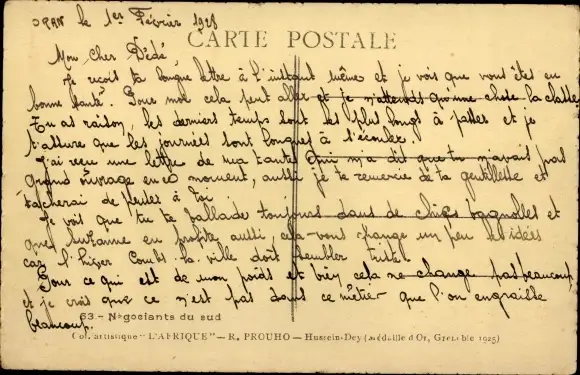 ORAN le 1er Février 1928
CARTE POSTALE
Mon cher Dédé,
Je reçois ta longue lettre à l'instant même et je vois que vous êtes en
bonne santé. Pour moi cela peut aller et je n'attends qu'une chose la classe
Tu as raison, les derniers temps sont les plus longs à passer et je
t'assure que les journées sont longues à s'écouler.
J'ai reçu une lettre de ma tante qui m'a dit que tu n'avais pas
grand ouvrage en ce moment, aussi je te remercie de ta gentillesse et
tacherai de penser à toi
Je vois que tu te ballades toujours dans de chics bagnolles et
que Suzanne en profite aussi cela vous change un peu les idées
car l'hiver Combs la ville doit sembler triste
Pour ce qui est de mon poids et bien cela ne change pas beaucoup,
et je crois que ce n'est pas dans ce métier que l'on engraisse
beaucoup.
63 - Négociants du sud
Col. artistique "L'AFRIQUE" — R. PROUHO — Hussein-Dey (médaille d'Or, Grenoble 1925)